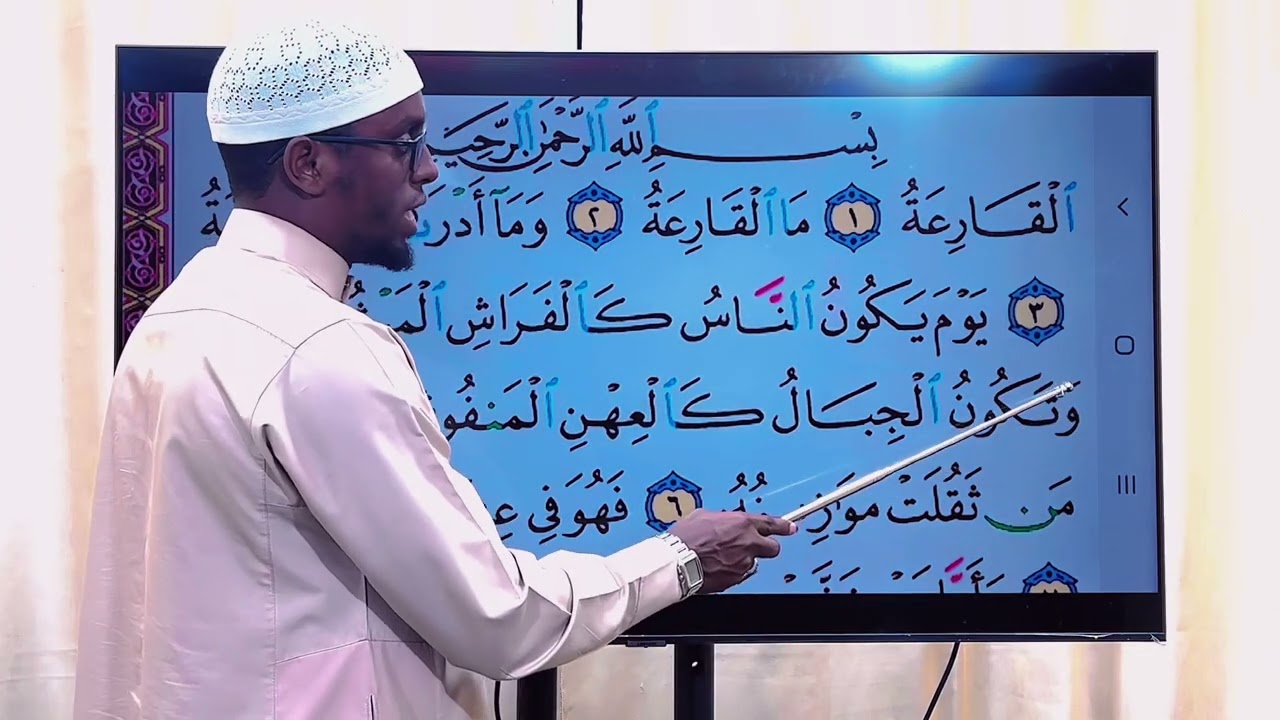 بِسْمِ ٱللَّهِ ٱلرَّحْمَٰنِ ٱلرَّحِي
ٱلْقَارِعَةُ ١ مَا ٱلْقَارِعَةُ ٢ وَمَآ أَدْرَ
٣ يَوْمَ يَكُونُ ٱلنَّاسُ كَٱلْفَرَاشِ ٱلْمَبْ
وَتَكُونُ ٱلْجِبَالُ كَٱلْعِهْنِ ٱلْمَنفُو
مَن ثَقُلَتْ مَوَٰزِينُهُ ٦ فَهُوَ فِي عِ